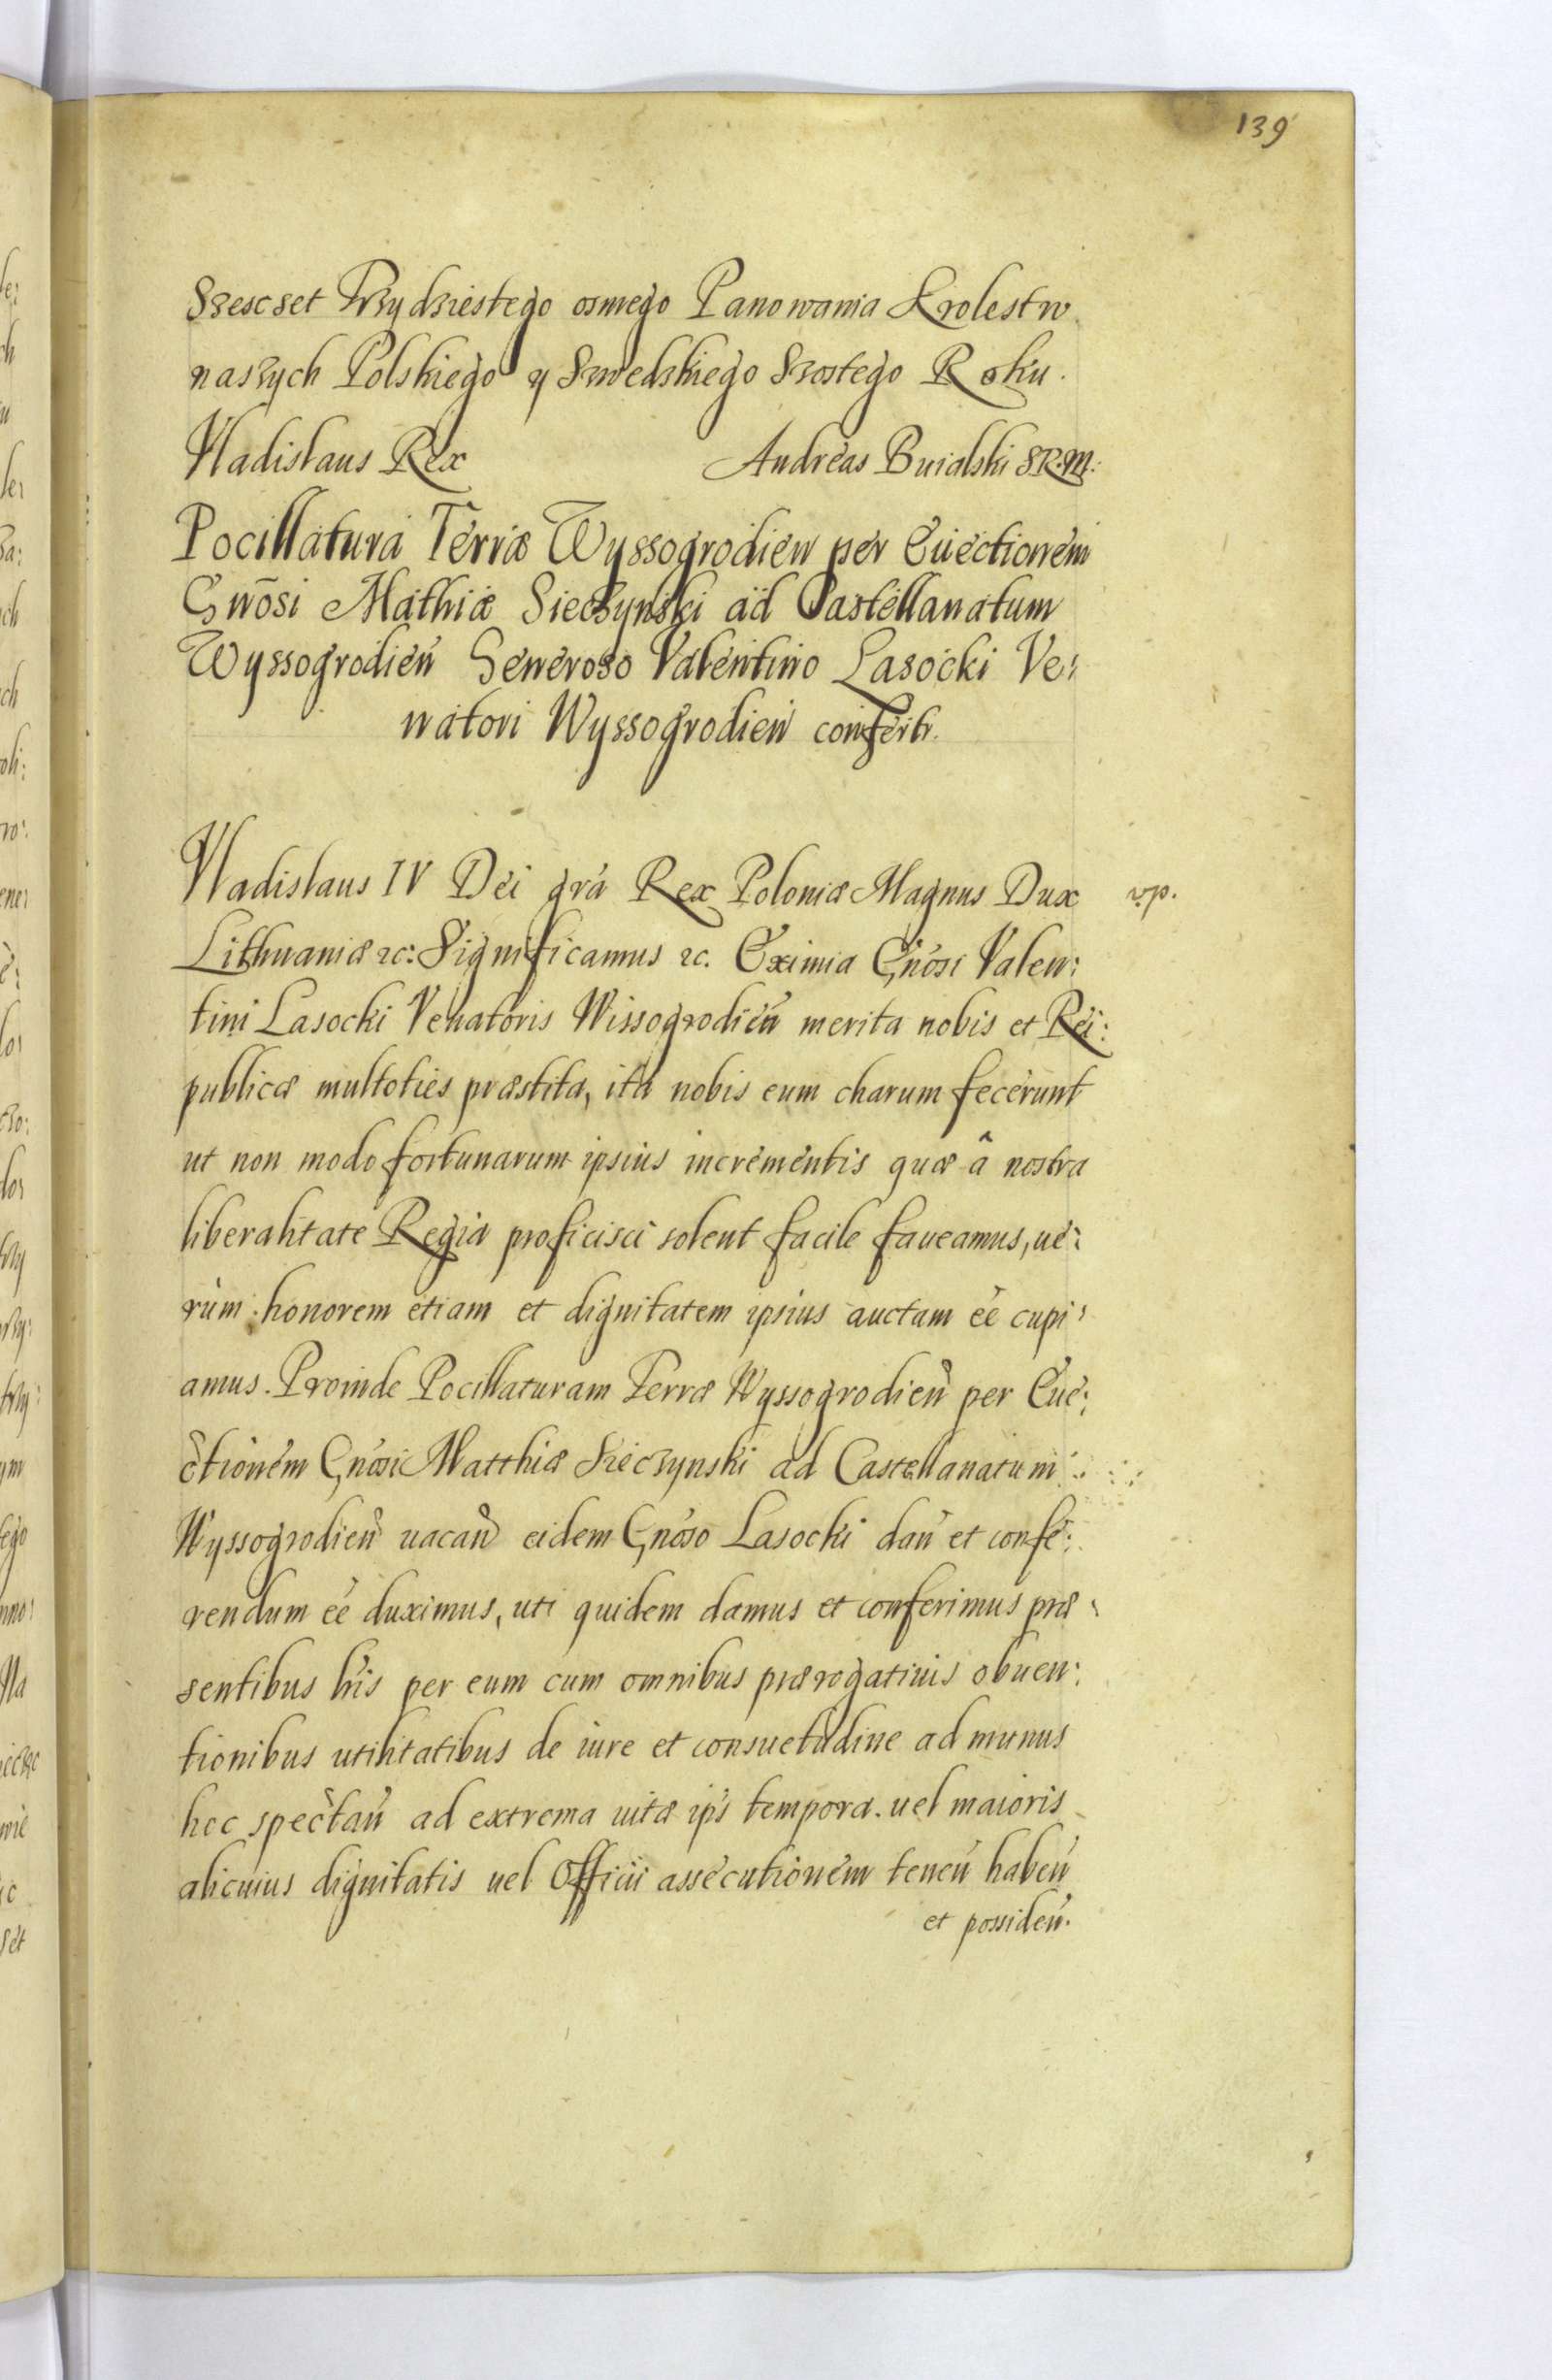 139
Szescset Trzydziestego osmego Panowania Krolestw
naszych Polskiego y Szwedskiego Szostego Roku.
Vladislaus Rex Andreas Buialski S.R.M:
Pocillatura Terræ Wyssogrodień per Euectionem
Gnōsi Mathiæ Sieczynski ad Castellanatum
Wyssogrodień Generoso Valentino Lasocki Ve:
natori Wyssogrodień confertr.
Vladislaus IV Dei grà Rex Poloniæ Magnus Dux
Lithuaniæ &c: Significamus &c. Eximia Gnōsi Valen:
tini Lasocki Venatoris Wissogrodień merita nobis et Rei:
publicæ multoties præstita, ita nobis eum charum fecerunt
ut non modo fortunarum ipsius incrementis quæ â nostra
liberalitate Regia proficisci solent facile faueamus, ue:
rùm honorem etiam et dignitatem ipsius auctam ēē cupi:
amus. Proinde Pocillaturam Terræ Wyssogrodień per Eue:
ctionem Gnōsi Matthiæ Sieczynski ad Castellanatum
Wyssogrodień uacań eidem Gnōso Lasocki dań et confe:
rendum ēē duximus, uti quidem damus et conferimus præ:
sentibus hīs per eum cum omnibus prærogatiuis obuen:
tionibus utilitatibus de iure et consuetudine ad munus
hoc spectań ad extrema uitæ ip̄s tempora. uel maioris
alicuius dignitatis uel Officii assecutionem teneń habeń
et possideń.